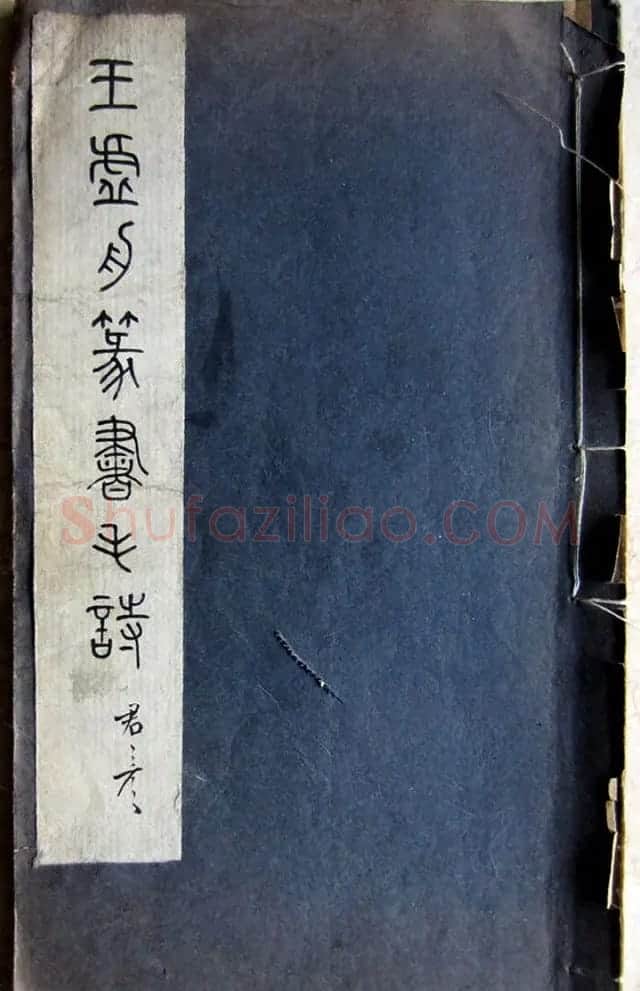 王虛舟篆書毛詩
君
Shufaziliao.COM